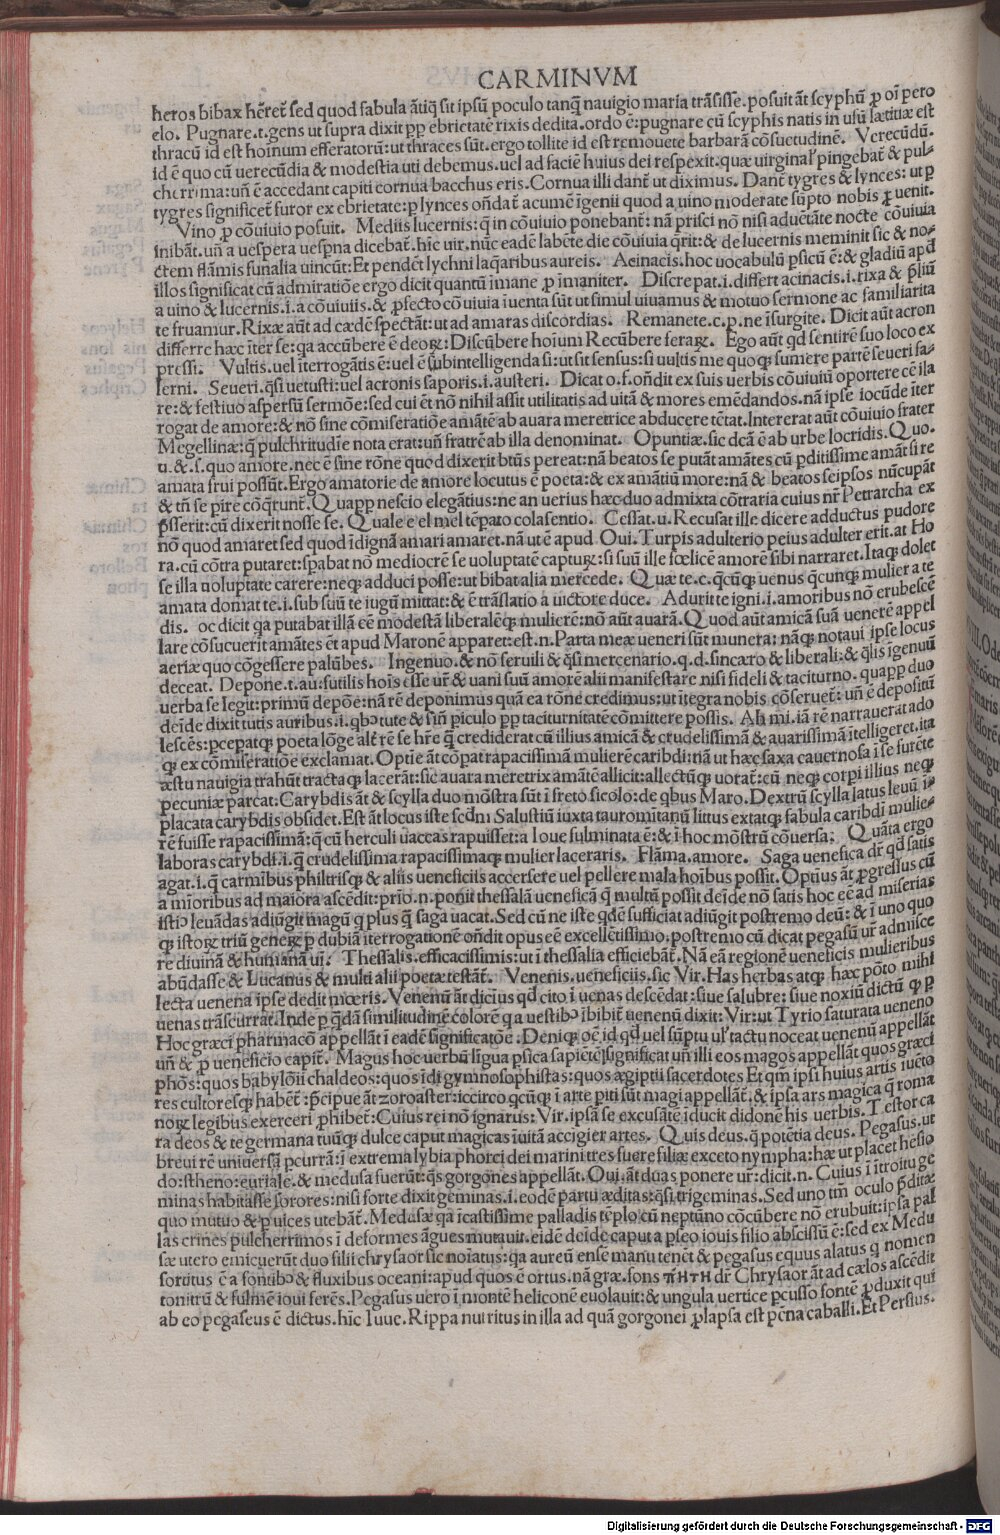 CARMINVM
heros bibax hēret̄ sed quod fabula ātiq̄ sit ipsū poculo tanq̄ nauigio maria trāsisse. posuit āt scyphū ꝓ oī pero
elo. Pugnare.t.gens ut supra dixit pp ebrietatē rixis dedita.ordo ē: pugnare cū scyphis natis in usū lætitiæ est
thracū id est hoīnum efferatorū: ut thraces sūt. ergo tollite id est remouete barbarā cōsuetudinē. Verecūdū.
id ē quo cū uerecūdia & modestia uti debemus. uel ad faciē huius dei respexit. quæ uirginal̄ pingebat̄ & pul-
cherrima: uñ ē accedant capiti cornua bacchus eris. Cornua illi dant̄ ut diximus. Dant̄ tygres & lynces: ut p
tygres significet̄ furor ex ebrietate: p lynces oñdat̄ acumē īgenii quod a uino moderate sūpto nobis ꝓuenit.
Vino ꝓ cōuiuio posuit. Mediis lucernis: q̄ in cōuiuio ponebant̄: nā prisci nō nisi aduētāte nocte cōuiuia
inibāt. uñ a uespera uespna dicebat̄. hīc uir. nūc eadē labēte die cōuiuia q̄rit: & de lucernis meminit sic & no-
ctem flāmis funalia uincūt: Et pendēt lychni laq̄aribus aureis. Acinacis. hoc uocabulū psicū ē: & gladiū apd
illos significat cū admiratiōe ergo dicit quantū imane ꝓ imaniter. Discrepat.i.differt acinacis.i.rixa & p̄liū
a uino & lucernis.i.a cōuiuiis. & ꝓfecto cōuiuia iuenta sūt ut simul uiuamus & motuo sermone ac familiarita
te fruamur. Rixæ aūt ad cædē spectāt: ut ad amaras discordias. Remanete.c.p.ne īsurgite. Dicit aūt acron
differre hæc īter se: qa accūbere ē deoꝝ: Discūbere hoīum Recūbere feraꝝ. Ego aūt qd sentirē suo loco ex
pressi. Vultis. uel īterrogātis ē: uel ē subintelligenda si: ut sit sensus: si uultis me quoqꝫ sumere partē seueri fa-
lerni. Seueri. q̄si uetusti: uel acronis saporis.i.austeri. Dicat o.f.oñdit ex suis uerbis cōuiuiū oportere cē ila
re: & festiuo aspersū sermōe: sed cui ēt nō nihil assit utilitatis ad uitā & mores emēdandos. nā ipse iocūde īter
rogat de amore: & nō sine cōmiseratiōe amātē ab auara meretrice abducere tētat. Intererat aūt cōuiuio frater
Megellinæ: q̄ pulchritudīe nota erat: uñ fratrē ab illa denominat. Opuntiæ. sic dcā ē ab urbe locridis. Quo.
u.&.s.quo amore. nec ē sine rōne quod dixerit btūs pereat: nā beatos se putāt amātes cū pditissime amāt si re
amata frui possūt. Ergo amatorie de amore locutus ē poeta: & ex amātiū more: nā & beatos seipsos nūcupāt
& tñ se pire cōq̄runt̄. Quapp nescio elegātius: ne an uerius hæc duo admixta cōtraria cuius nr̄ Petrarcha ex
p̄sserit: cū dixerit nosse se. Quale e el mel tēpato cola sentio. Cessat. u. Recusat ille dicere adductus pudore
nō quod amaret sed quod īdignā amari amaret. nā ut ē apud Oui. Turpis adulterio peius adulter erit. at Ho
ra. cū cōtra putaret: spabat nō mediocrē se uoluptatē capturꝫ: si suū ille fœlicē amorē sibi narraret. Itaqꝫ dolet
se illa uoluptate carere: neqꝫ adduci posse: ut bibat alia mercede. Quæ te.c.q̄cūqꝫ uenus q̄cunqꝫ mulier a te
amata domat te.i.sub suū te iugū mittat: & ē trāslatio a uictore duce. Adurit te igni.i.amoribus nō erubescē
dis. oc dicit qa putabat illā eē modestā liberalēqꝫ mulierē: nō aūt auarā. Quod aūt amicā suā uenerē appel
lare cōsucuerit amātes ēt apud Maronē apparet: est.n. Parta meæ ueneri sūt munera: nāqꝫ notaui ipse locus
aeriæ quo cōgessere palūbes. Ingenuo. & nō seruili & q̄si mercenario. q.d. sincæro & liberali: & q̄lis īgenuū
deceat. Depone. t. au: futilis hoīs esse ur̄ & uani suū amorē alii manifestare nisi fideli & taciturno. quapp duo
uerba se legit: primū depōe: nā rē deponimus quā ea rōne credimus: ut ītegra nobis cōseruet̄: uñ ē depositū
deīde dixit tutis auribus.i.qbꝰ tute & siñ piculo pp taciturnitatē cōmittere possis. Ah mi. iā rē narrauerat ado
lescēs: pcepatqꝫ poeta lōge alr̄ rē se hr̄e q̄ crediderat cū illius amicā & crudelissimā & auarissimā ītelligeret. ita
qꝫ ex cōmiseratiōe exclamat. Optīe āt cōpat rapacissimā mulierē caribdi: nā ut hæc saxa cauernosa ī se furēte
æstu nauigia trahūt tractaqꝫ lacerāt: sic auara meretrix amātē allicit: allectūqꝫ uorat̄: cū neqꝫ corpi illius neqꝫ
pecuniæ parcat: Carybdis āt & scylla duo mōstra sūt ī freto sicolo: de qbus Maro. Dextrū scylla latus leuū ī-
placata carybdis obsidet. Est āt locus iste scdm̄ Salustiū iuxta tauromitanū littus extatqꝫ fabula caribdī mulie-
rē fuisse rapacissimā: q̄ cū herculi uaccas rapuisset: a Ioue fulminata ē: & ī hoc mōstrū cōuersa: Quāta ergo
laboras carybdi.i.q̄ crudelissima rapacissimaqꝫ mulier laceraris. Flāma. amore. Saga uenefica dr̄ qd satis
agat.i.q̄ carmībus philtrisqꝫ & aliis ueneficiis accersere uel pellere mala hoībus possit. Optīus āt ꝓgressus cū
a mioribus ad maiora ascēdit: prīo.n.ponit thessalā ueneficā q̄ multū possit deīde nō satis hoc eē ad miserias
istiꝰ leuādas adiūgit magū q plus q̄ saga uacat. Sed cū ne iste qdē sufficiat adiūgit postremo deū: & ī uno quo
qꝫ istoꝝ triū geneꝝ ꝓ dubiā īterrogationē oñdit opus eē excellētissimo. postremo cū dicat pegasū ur̄ admisce
re diuinā & humanā uī: Thessalis. efficacissimis: ut ī thessalia efficiebāt̄. Nā eā regionē ueneficis mulieribus
abūdasse & Lucanus & multi alii poetæ testāt̄. Venenis. ueneficiis. sic Vir. Has herbas atqꝫ hæc pōto mihi
lecta uenena ipse dedit mœris. Venenū āt dicīus qd cito ī uenas descēdat: siue salubre: siue noxiū dictū qꝫ p
uenas trāscurrat. Inde p q̄dā similitudinē colorē qa uestibꝰ ībibit̄ uenenū dixit: Vir: ut Tyrio saturata ueneno
Hoc græci pharmacō appellāt ī eadē significatōe: Deniqꝫ oē id qd uel sūptu ul' tactu noceat uenenū appellāt
uñ & ꝓ ueneficio capit̄. Magus hoc uerbū līgua psica sapiētē significat uñ illi eos magos appellāt quos græci
phōs: quos babylōii chaldeos: quos īdi gymnosophistas: quos ægiptii sacerdotes Et qm̄ ipsi huius artis iuēto
res cultoresqꝫ habēt̄: p̄cipue āt zoroaster: iccirco qcūqꝫ ī arte piti sūt magi appellāt̄. & ipsa ars magica q̄ roma
noꝝ legibus exerceri ꝓhibet̄: Cuius rei nō ignarus: Vir. ipsā se excusātē īducit didonē his uerbis. Testor ca
ra deos & te germana tuūqꝫ dulce caput magicas īuitā accigier artes. Quis deus. q̄ potētia deus. Pegasus. ut
breui rē uniuersā pcurrā: ī extrema lybia phorci dei marini tres fuere filiæ ex ceto nympha: hæ ut placet hesio
do: stheno: euriale. & medusa fuerūt: q̄s gorgones appellāt. Oui. āt duas ponere ur̄: dicit.n. Cuius ī ītroitu ge
minas habitasse sorores: nisi forte dixit geminas.i.eodē partu æditas: q̄si trigeminas. Sed uno tm̄ oculo p̄ditæ
quo mutuo & p uices utebāt̄. Medusæ qa īcastissime palladis tēplo cū neptūno cōcūbere nō erubuit: ipsa pal
las crines pulcherrimos ī deformes āgues mutauit. eidē deīde caput a pseo iouis filio abscissū ē: sed ex Medu
sæ utero emicuerūt duo filii chrysaor sic noīatus: qa aureū ensē manu tenēt & pegasus equus alatus q nomen
sortitus ē a fontibꝰ & fluxibus oceani: apud quos ē ortus. nā græ. fons πητη dr̄ Chrysaor āt ad cælos ascēdit
tonitrū & fulmē ioui ferēs. Pegasus uero ī montē heliconē euolauit: & ungula uertice pcusso fontē ꝓduxit qui
ab eo pegaseus ē dictus. hīc Iuue. Rippa nutritus in illa ad quā gorgonei ꝓlapsa est pēna caballi. Et Persius.
Digitalisierung gefördert durch die Deutsche Forschungsgemeinschaft - DFG